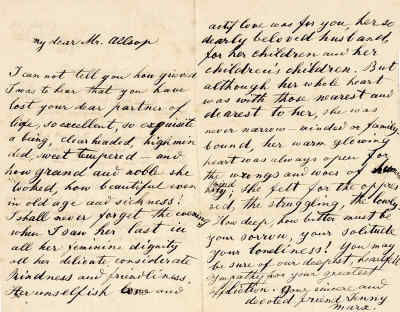 my dear Mr. Allsop
I can not tell you how grieved
I was to hear that you have
lost your dear partner of
life, so excellent, so exquisite
a being, clearheaded, highmin
ded, sweet tempered – and
how grand and noble she
looked, how beautiful even
in old age and sickness!
I shall never forget the evening
when I saw her last in
all her feminine dignity
all her delicate considerate
kindness and friendliness.
Her unselfish love and
love was for you, her so
dearly beloved husband,
for her children and her
children's children. But
although her whole heart
was with those nearest and
dearest to her, she was
never narrow-minded or family
bound, her warm glowing
heart was always open for
the wrongs and woes of
She felt for the oppres
sed, the struggling, the lowly
How deep, how bitter must be
your sorrow, your solitude
your loneliness! You may
be sure of our deepest, heartfelt
sympathy for your greatest
affliction. Your sincere and
devoted friend Jenny
Marx.